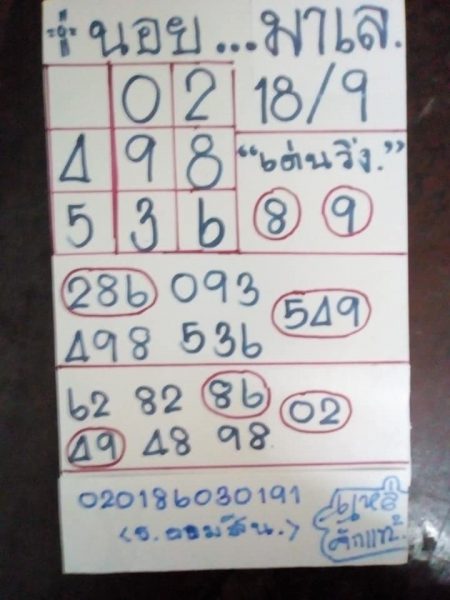 นอย...มาเล.
02 18/9
498 "เด่นวิ่ง."
536 8 9
286 093 549
498 536
62 82 86 02
49 48 98
020186030191
(ธ.ออมสิน.)